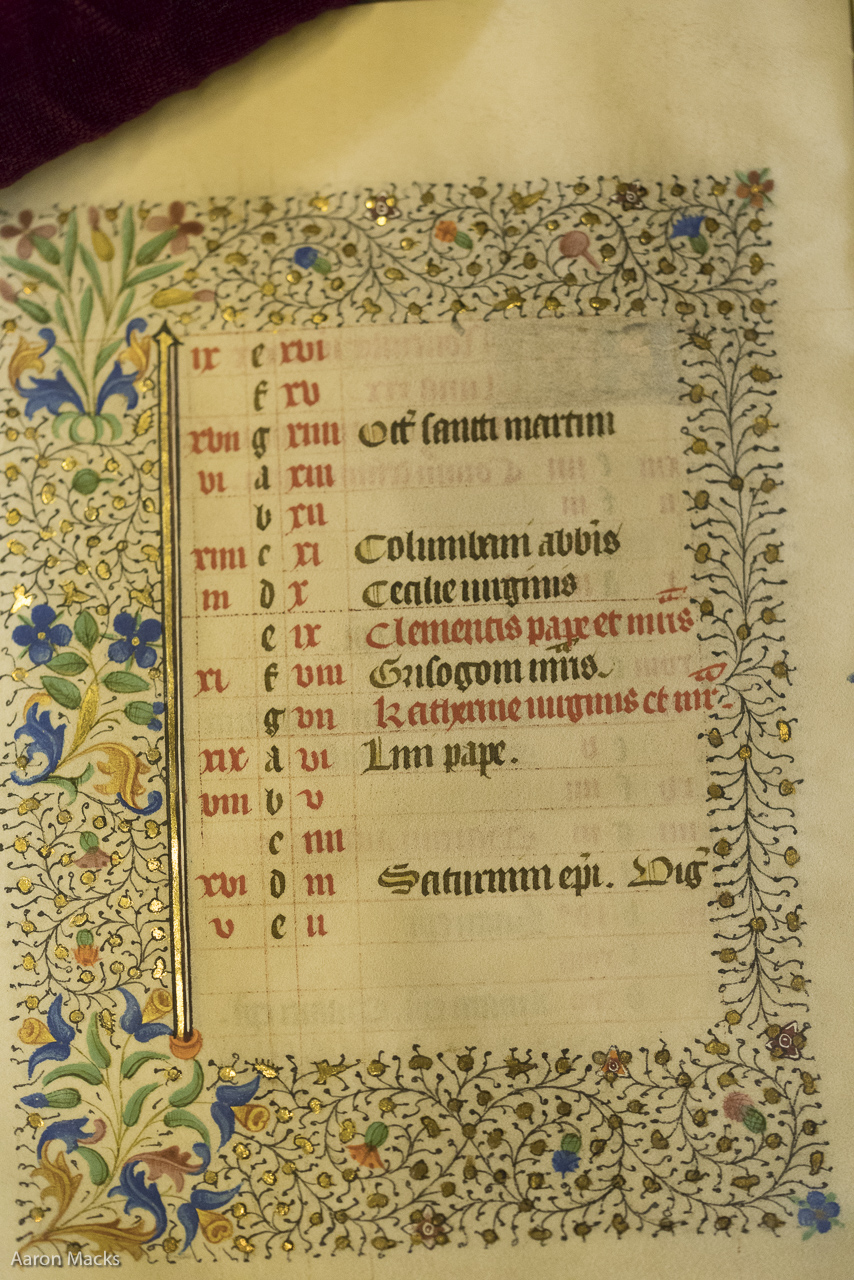 ix e xvi
f xv
xvii g xiiii Oct̄ sancti martini
vi a xiii
b xii
xiiii c xi Columbani abbīs
iii d x Cecilie uirginis
e ix Clementis pape et mr̄is
xi f viii Grisogoni mr̄is.
g vii Katherine uirginis et mr̄.
xix a vi Lini pape.
viii b v
c iiii
xvi d iii Saturnini ep̄i. Viḡ
v e ii
Aaron Macks